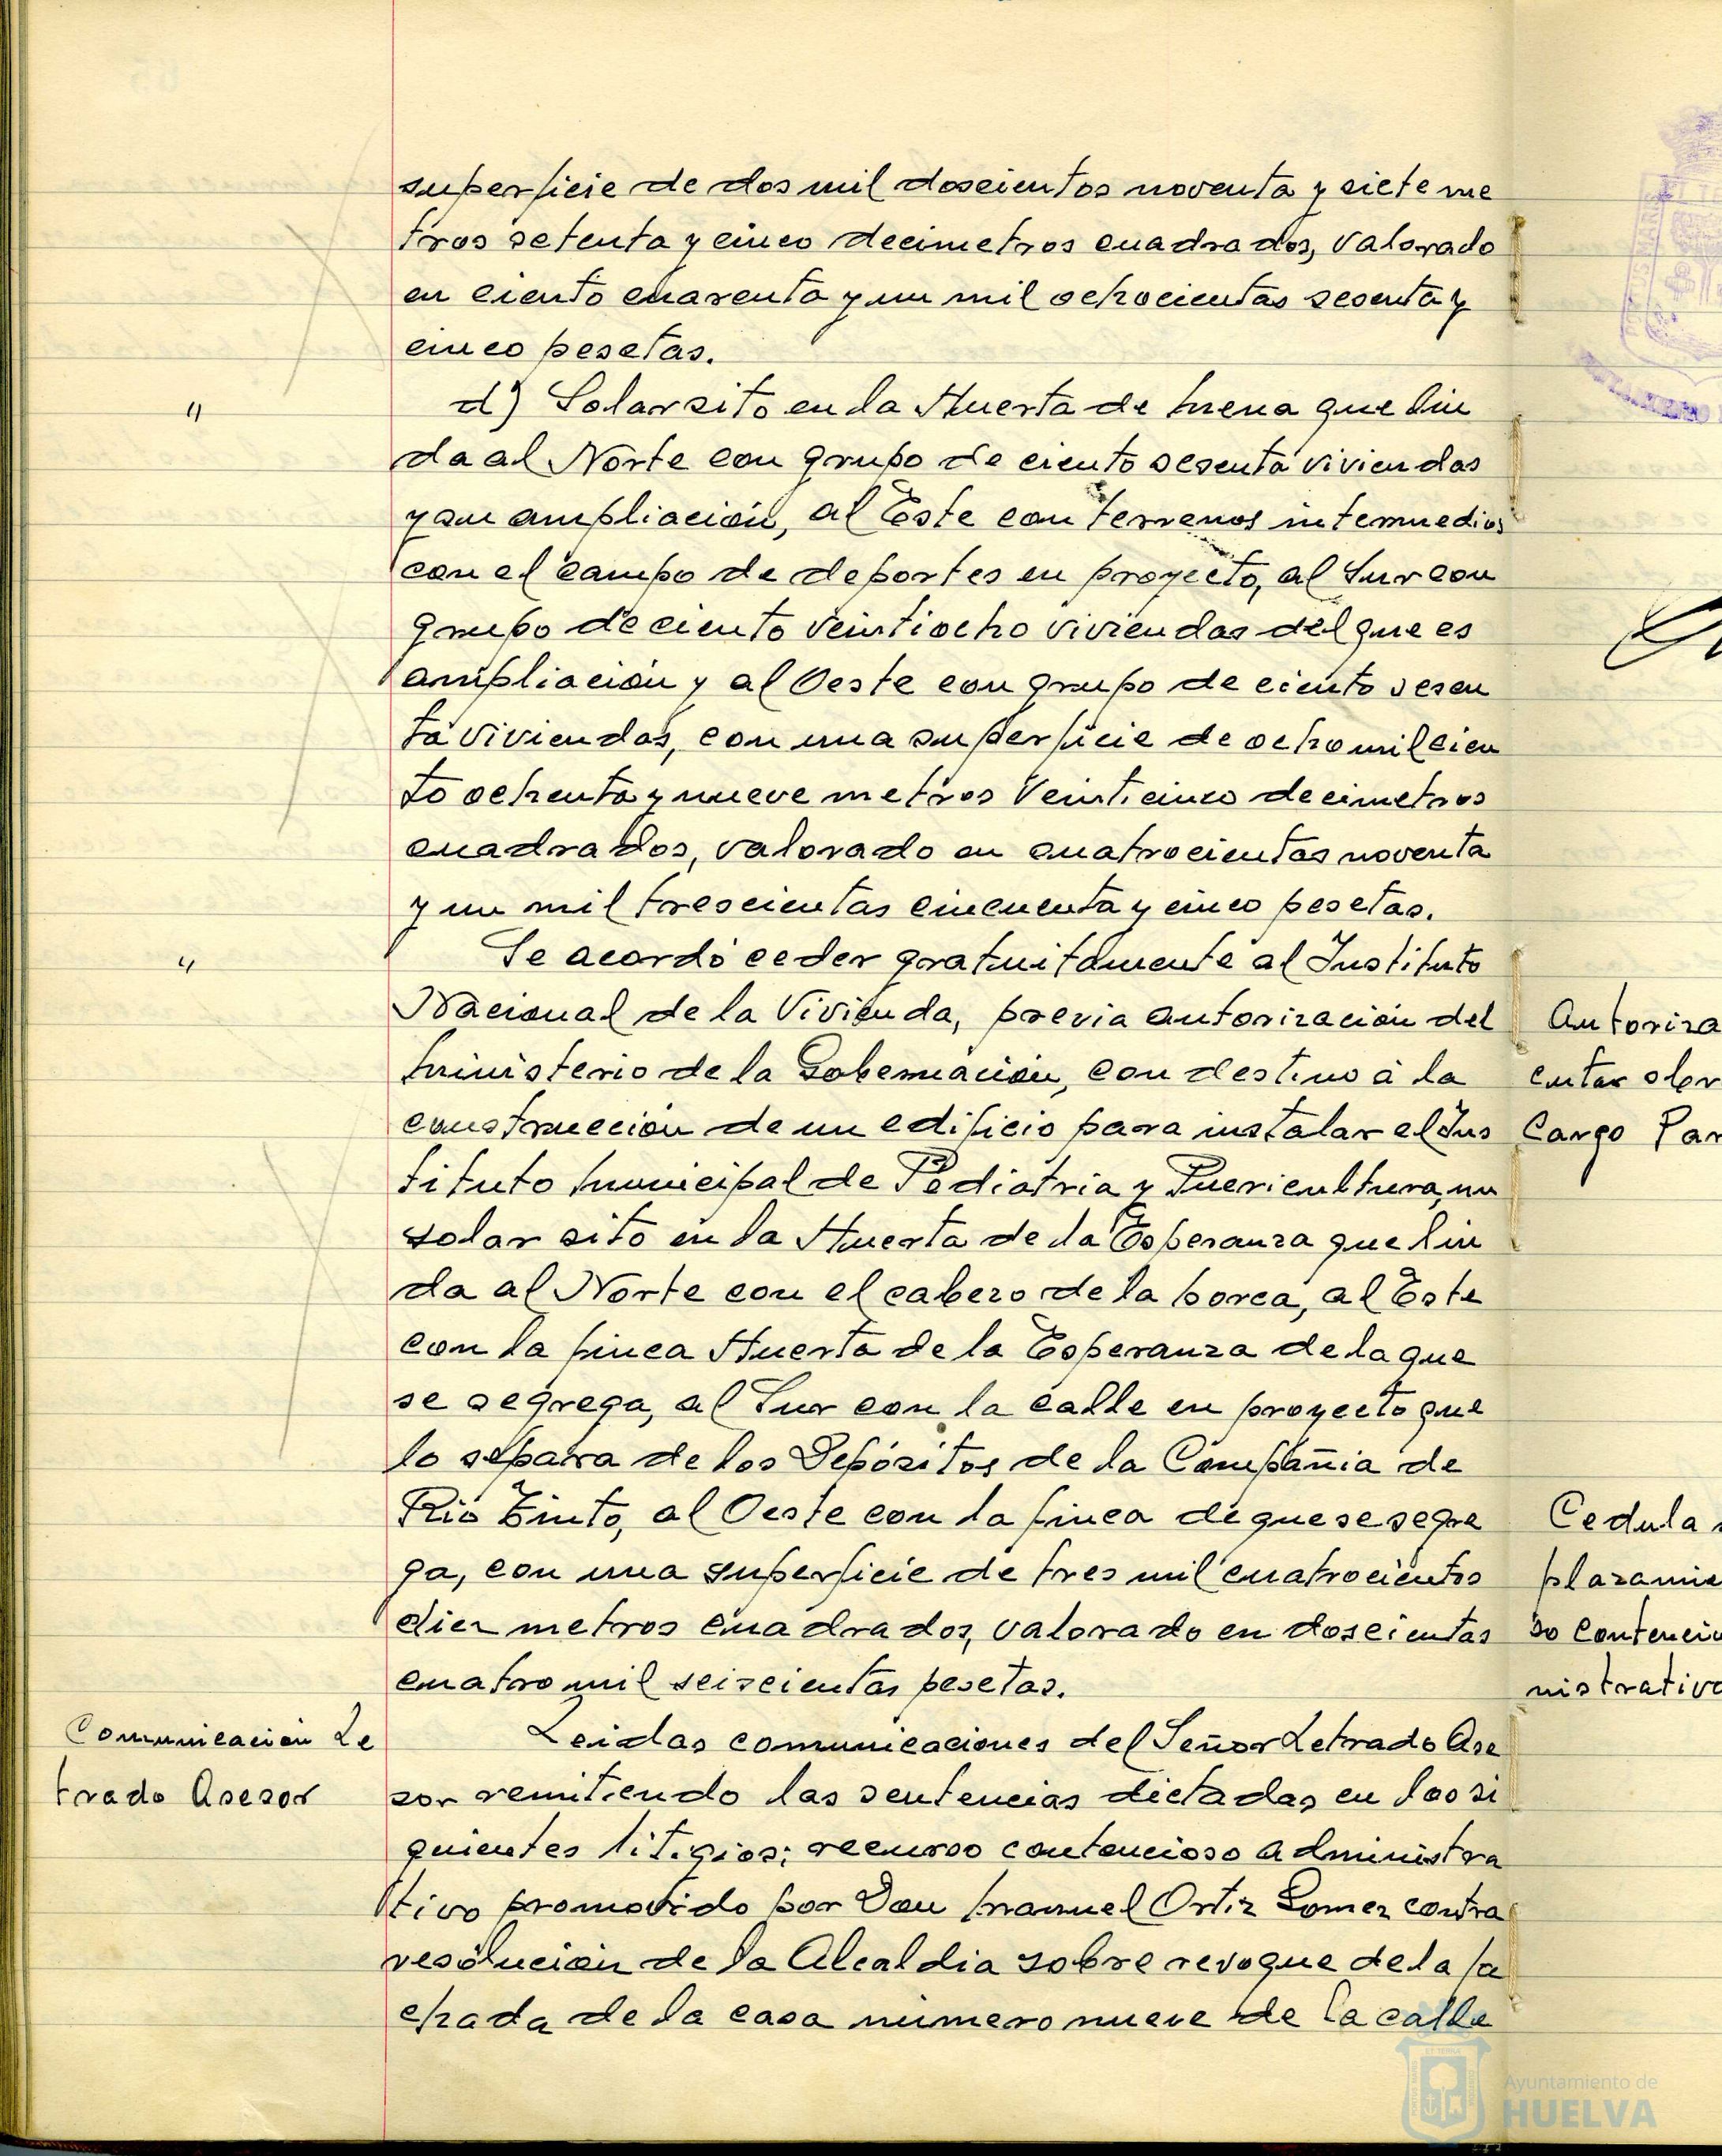 superficie de dos mil doscientos noventa y siete me
tros setenta y cinco decimetros cuadrados, valorado
en ciento cuarenta y un mil ochocientas sesenta y
cinco pesetas.
"
d) Solar sito en la Huerta de Mena que lin
da al Norte con grupo de ciento sesenta viviendas
y su ampliación, al Este con terrenos intermedios
con el campo de deportes en proyecto, al Sur con
grupo de ciento veintiocho viviendas del que es
ampliación y al Oeste con grupo de ciento sesen
ta viviendas, con una superficie de ocho mil cien
to ochenta y nueve metros veinticinco decimetros
cuadrados, valorado en cuatrocientas noventa
y un mil trescientas cincuenta y cinco pesetas.
"
Se acordó ceder gratuitamente al Instituto
Nacional de la Vivienda, previa autorización del
Ministerio de la Gobernación, con destino a la
construcción de un edificio para instalar el Ins
tituto Municipal de Pediatria y Puericultura, un
solar sito en la Huerta de la Esperanza que lin
da al Norte con el cabezo de la horca, al Este
con la finca Huerta de la Esperanza de la que
se segrega, al Sur con la calle en proyecto que
lo separa de los Depósitos de la Compañia de
Rio Tinto, al Oeste con la finca de que se segre
ga, con una superficie de tres mil cuatrocientos
diez metros cuadrados, valorado en doscientas
cuatro mil seiscientas pesetas.
Comunicación Le
trado Asesor
Leidas comunicaciones del Señor Letrado Ase
sor remitiendo las sentencias dictadas en los si
guientes litigios; recurso contencioso administra
tivo promovido por Don Manuel Ortiz Gomez contra
resolución de la Alcaldia sobre revoque de la fa
chada de la casa numero nueve de la calle
Autoriza
entar
Cargo Par
Cedula
plazamie
so contencio
nistrativo
Ayuntamiento de
HUELVA